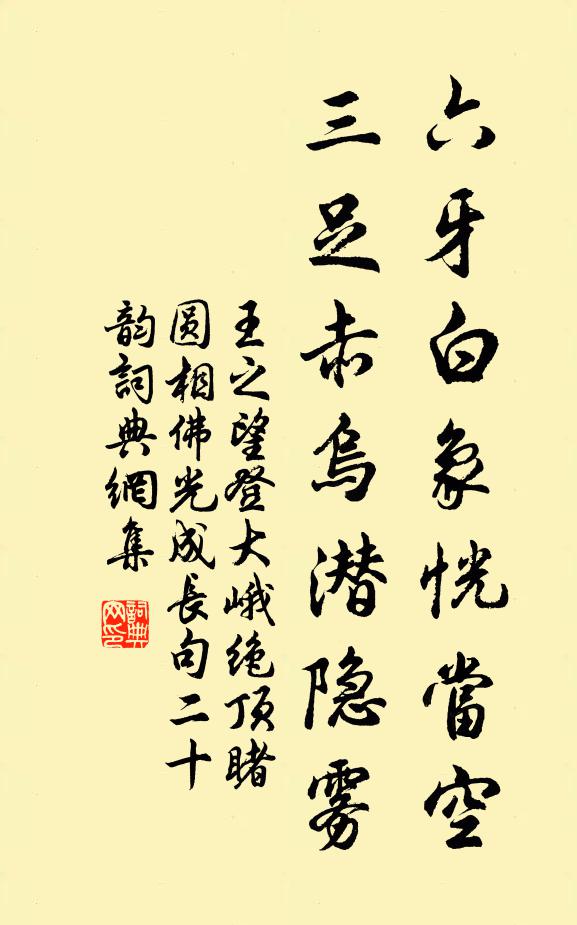 六牙白象恍當空
三足赤烏潜隐雾
王之望登大峨绝顶睹
圆相佛光成長句二十
韵詞典網集
詞典网印